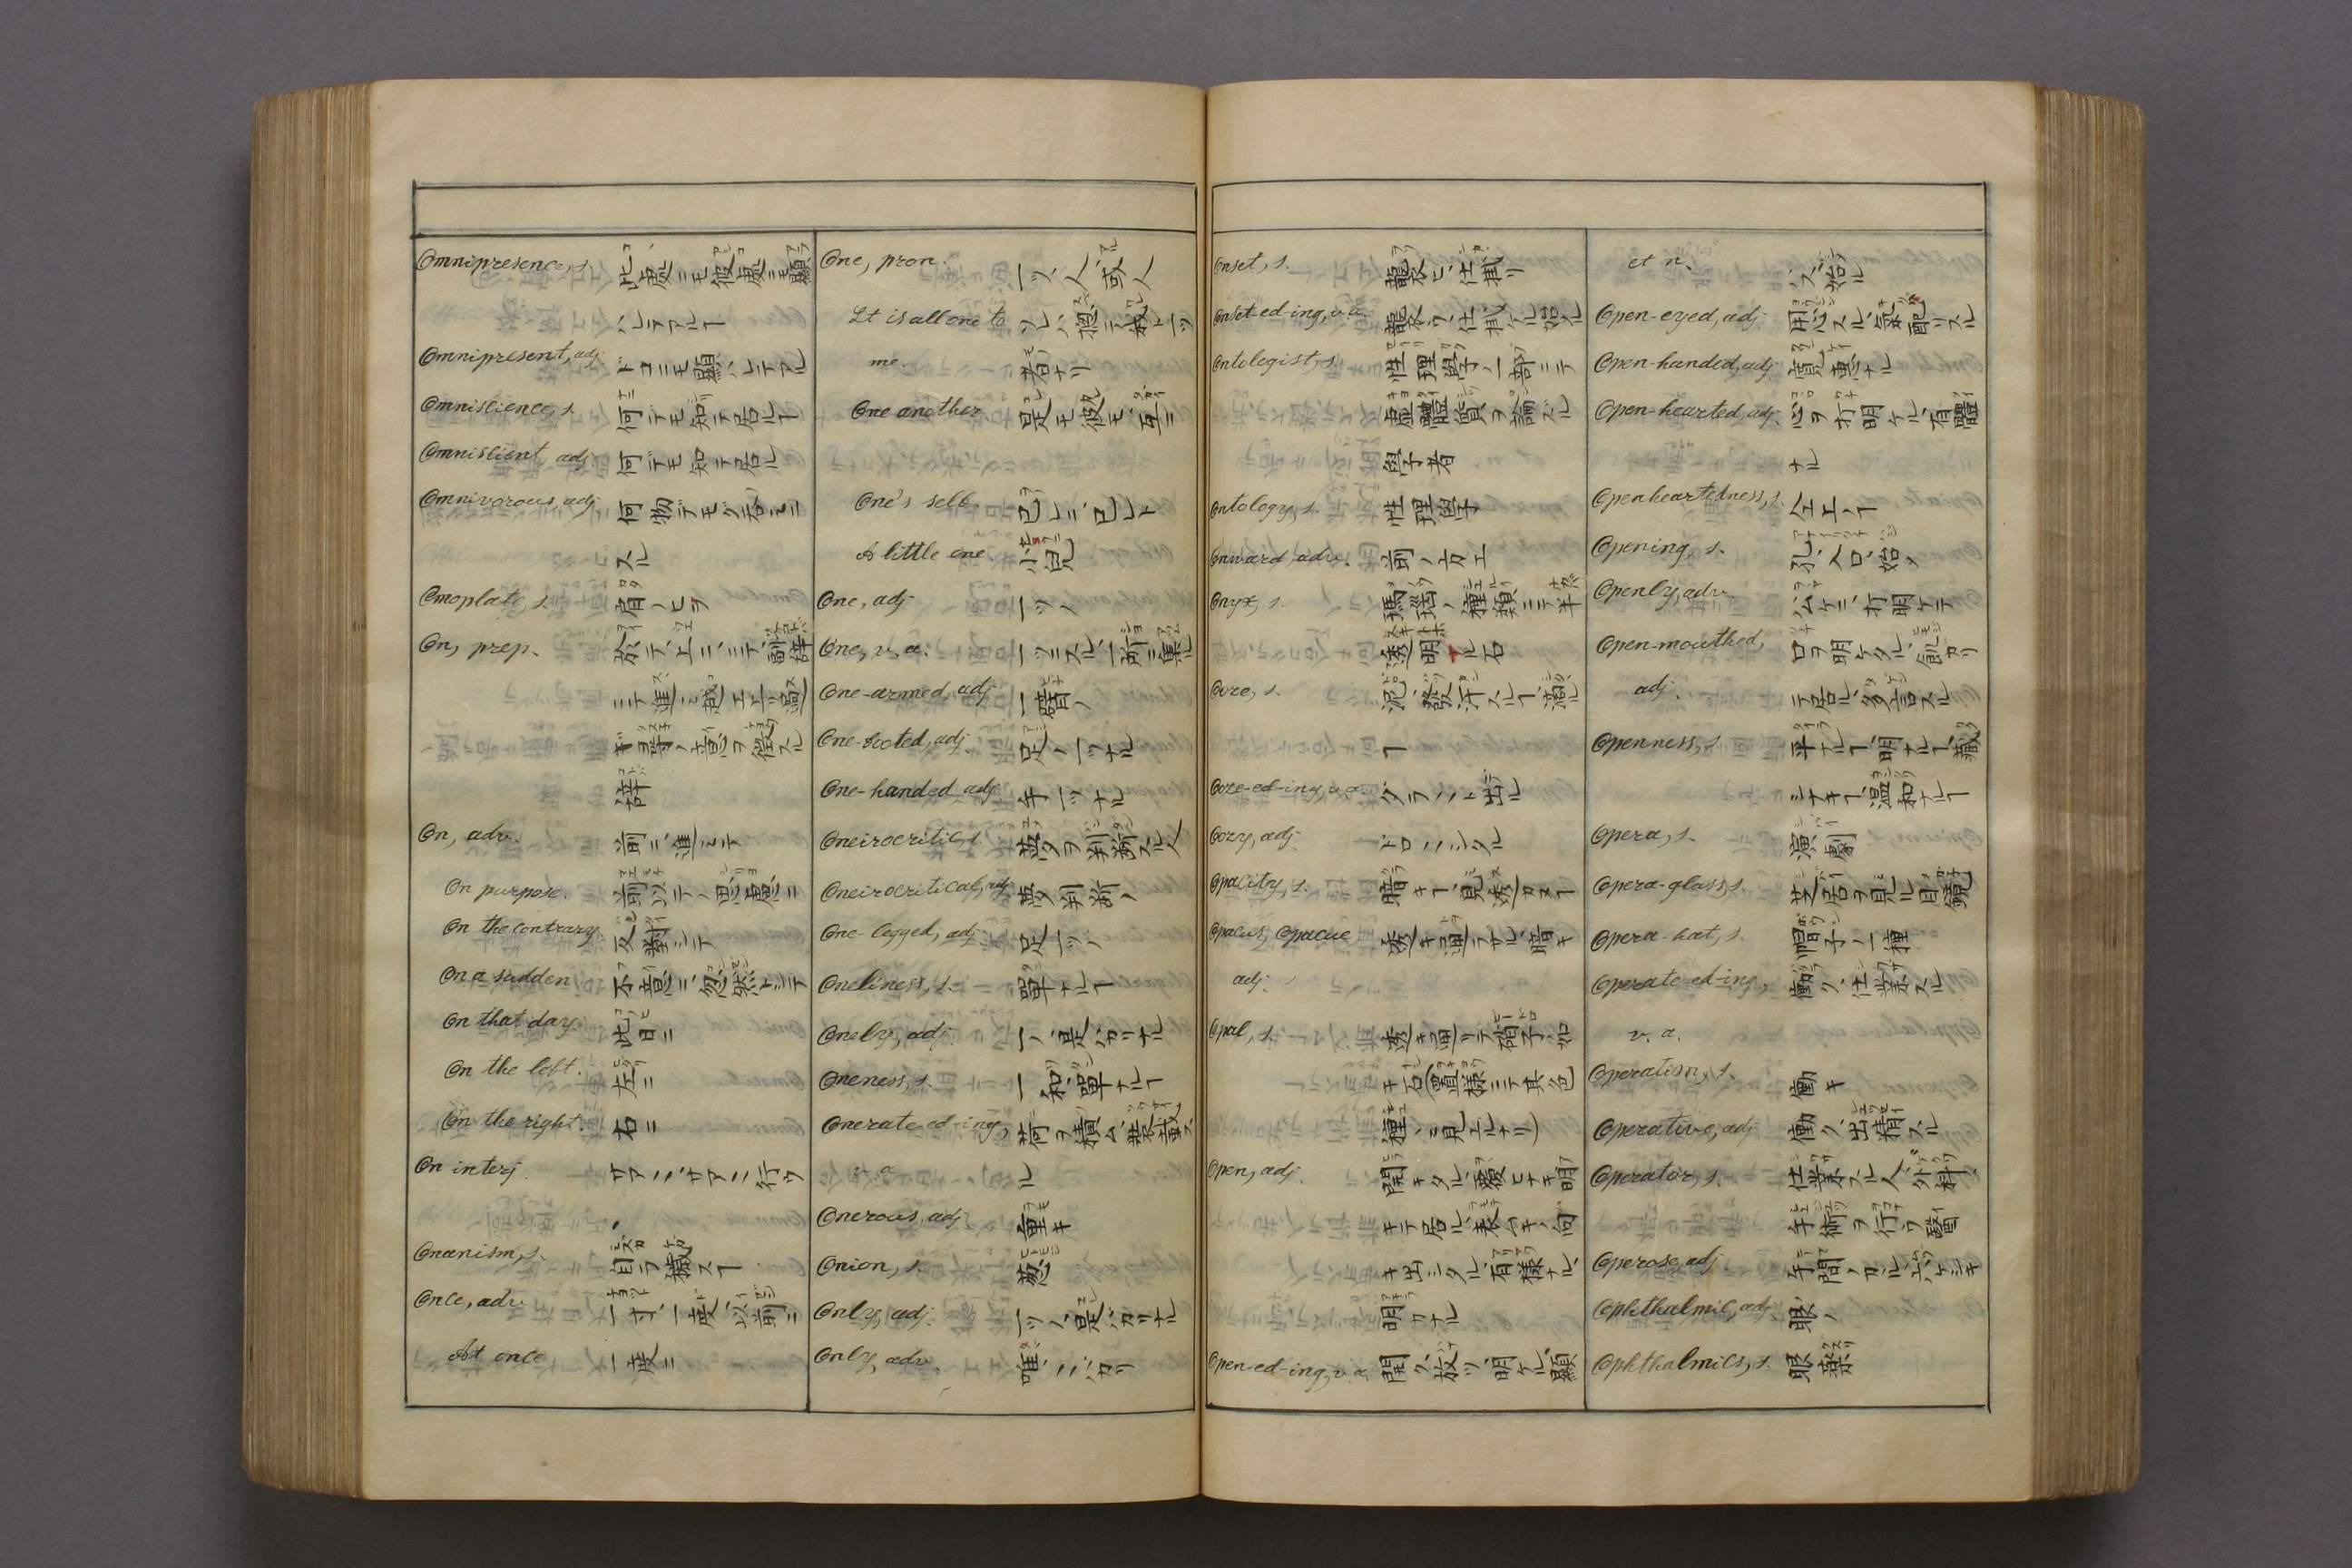 Omnipresence, s. 此處ニモ彼處ニモ顯
ハレテアルヿ
Omnipresent, adj. ドコニモ顯ハレテアル
Omniscience, s. 何ニテモ知テ居ルヿ
Omniscient, adj. 何ニテモ知テ居ル
Omnivorous, adj. 何物デモ
スル
Omoplate, s. 肩ノヒラ
On, prep. 於テ、上ニ、ニテ、副辞
ニテ進ミ越エ
ヿ等ノ意ヲ徴スル
辞
On, adv. 前ニ、進ミテ
On purpose. 前以テノ思慮ニ
On the contrary. 反對シテ
On a sudden. 不意ニ、忽然トシテ
On that day. 此日ニ
On the left. 左ニ
On the right. 右ニ
On interj. サア〻、サア〻行ケ
Onanism, s. 自ラ穢スヿ
Once, adv. 一寸、一度、以前ニ
At once 一度ニ
One, pron. 一ツ、人、或人
It is all one to ソレハ惣テ我ト一ツ
me. 者ナリ
One another 是モ彼モ、互ニ
One's self. 己レニ、已レト
A little one. 小兒
One, adj. 一ツノ
One, v. a. 一ツニスル、一所ニ集ル
One-armed, adj. 一臂ノ
One-footed, adj. 足ノ一ツナル
One-handed adj. 手一ツナル
Oneirocritic, s. 夢ヲ判斷スル人
Oneirocritical, adj. 夢判斷ノ
One-legged, adj. 足一ツノ
Oneliness, s. 單ナルヿ
Onely, adj. 一ノ、是バカリナル
Oneness, s. 一和、單ナルヿ
Onerate-ed-ing, 荷ヲ積ム、裝載ス
v. a. ル
Onerous, adj. 重キ
Onion, s. 葱
Only, adj. 一ツノ、是バカリナル
Only, adv. 唯、バカリ
Onset, s. 襲ヒ、仕掛リ
Onset-ed-ing, v. a. 襲フ、仕掛ケル、始ル
Ontologist, s. 性理學ノ一部ニテ
虚體質ヲ論ズル
學者
Ontology, s. 性理學
Onward, adv. 前ノ方エ
Onyx, s. 瑪瑙ノ種類ニテ半
透明ナル石
Ooze, s. 泥、發汗スルヿ、濕ル
ヿ
Ooze-ed-ing, v. a. ダラ〻ト出ル
Oozy, adj. ドロ〻シタル
Opacity, s. 暗キヿ、見透カヌヿ
Opacus, Opacue 透キ通ラザル、暗キ
adj.
Opal, s. 透キ通リテ硝子ノ如
キ石(置樣ニテ其色
種〻ニ見エルナリ)
Open, adj. 開キタル、覆ヒナキ、明
キテ居ル、
キ出シタル、有樣ナル、
明カナル
Open-ed-ing, v. a. 開ク、放ツ、明ケル、顯
et n. ス、始ル
Open-eyed, adj. 用心スル、氣配リスル
Open-handed, adj. 寬惠ナル
Open-hearted, adj. 心ヲ打明ケル、有體
ナル
Openheartedness, s. 仝上ノヿ
Opening, s. 孔、入口、始ノ
Openly, adv. 公ケニ、打明ケテ
Open-mouthed, 口ヲ明ケタル、飢カツ
adj. テ居ル、多言スル
Openness, s. 平ナルヿ、明ナルヿ、藏
シナキヿ、温和ナルヿ
Opera, s. 演劇
Opera-glass, s. 芝居ヲ見ル目鏡
Opera-hat, s. 帽子ノ一種
Operate-ed-ing, 働ク、仕業スル
v. a.
Operation, s. 働キ
Operative, adj. 働ク、出精スル
Operator, s. 仕業スル人、外科、
手術ヲ行フ醫
Operose, adj. 手間ノカル、
Ophthalmic, adj. 眼ノ
Ophthalmics, s. 眼藥